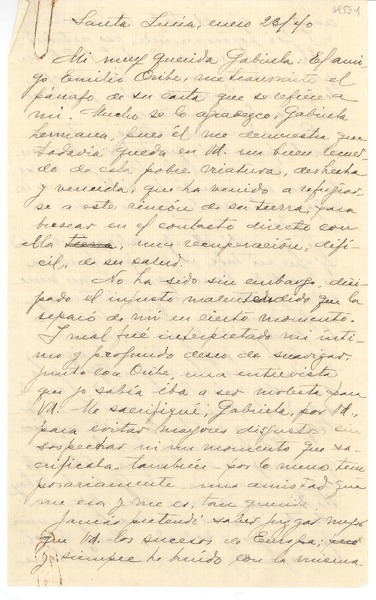 Santa Lucía, enero 23/40
Mi muy querida Gabriela: El ami-
go Emilio Oribe, me transmite el
párrafo de su carta que se refiere a
mí. Mucho se lo agradezco, Gabriela
hermana, pues él me demuestra que
todavía queda en Vd. un buen recuer-
do de esta pobre criatura, deshecha
y vencida, que ha venido a refugiar-
se a este rincón de su tierra, para
buscar en el contacto directo con
ella tierra, una recuperación, difí-
cil, de su salud.
No ha sido sin embargo, disi-
pado el injusto malentendido que la
separó de mí en cierto momento.
Y mal fué interpretado mi ínti-
mo y profundo deseo de suavizar,
junto con Oribe, una entrevista
que yo sabía iba a ser molesta para
Vd. Me sacrifiqué, Gabriela, por Vd.,
para evitar mayores disgustos sin
sospechar ni un momento que sa-
crificaba también - por lo menos tem
porariamente - una amistad que
me era y me es, tan querida.
Jamás pretendí saber juzgar mejor
que Vd. los sucesos de Europa;
y siempre he huído con la misma